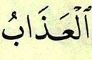 ٱلۡعَذَابُ